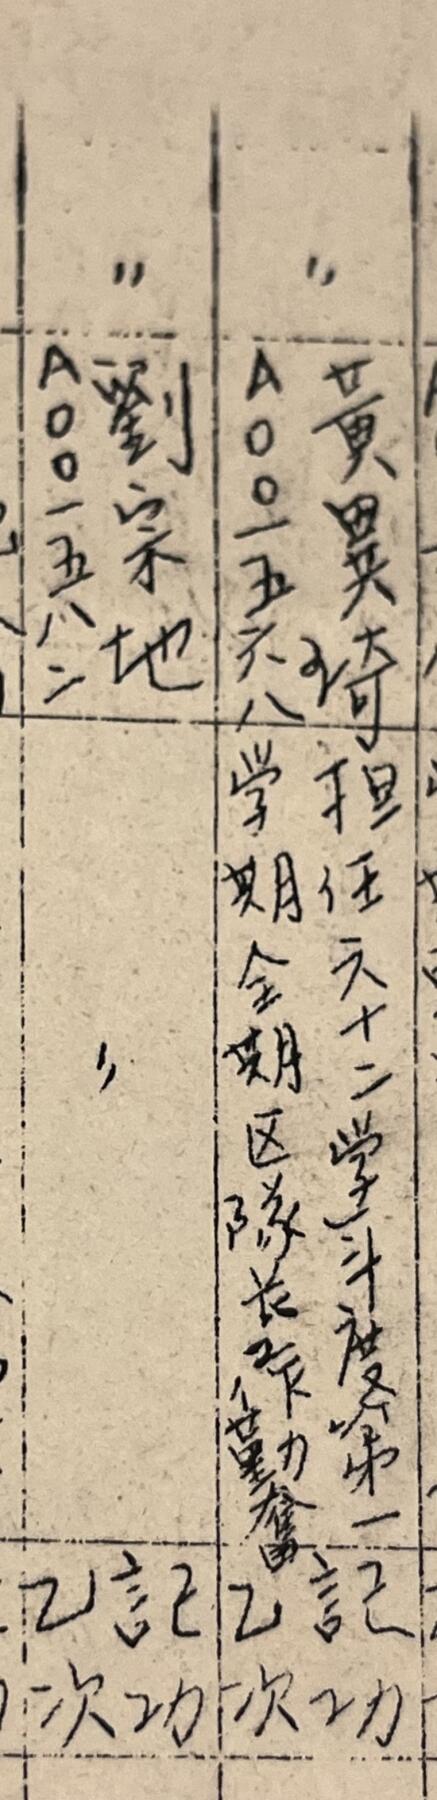 〃
黃異琦
A00一五六八
担任六十二学年度第一
学期全期区隊长工作勤奮
記功
乙次
〃
劉宗地
A00一五八二
〃
記功
乙次